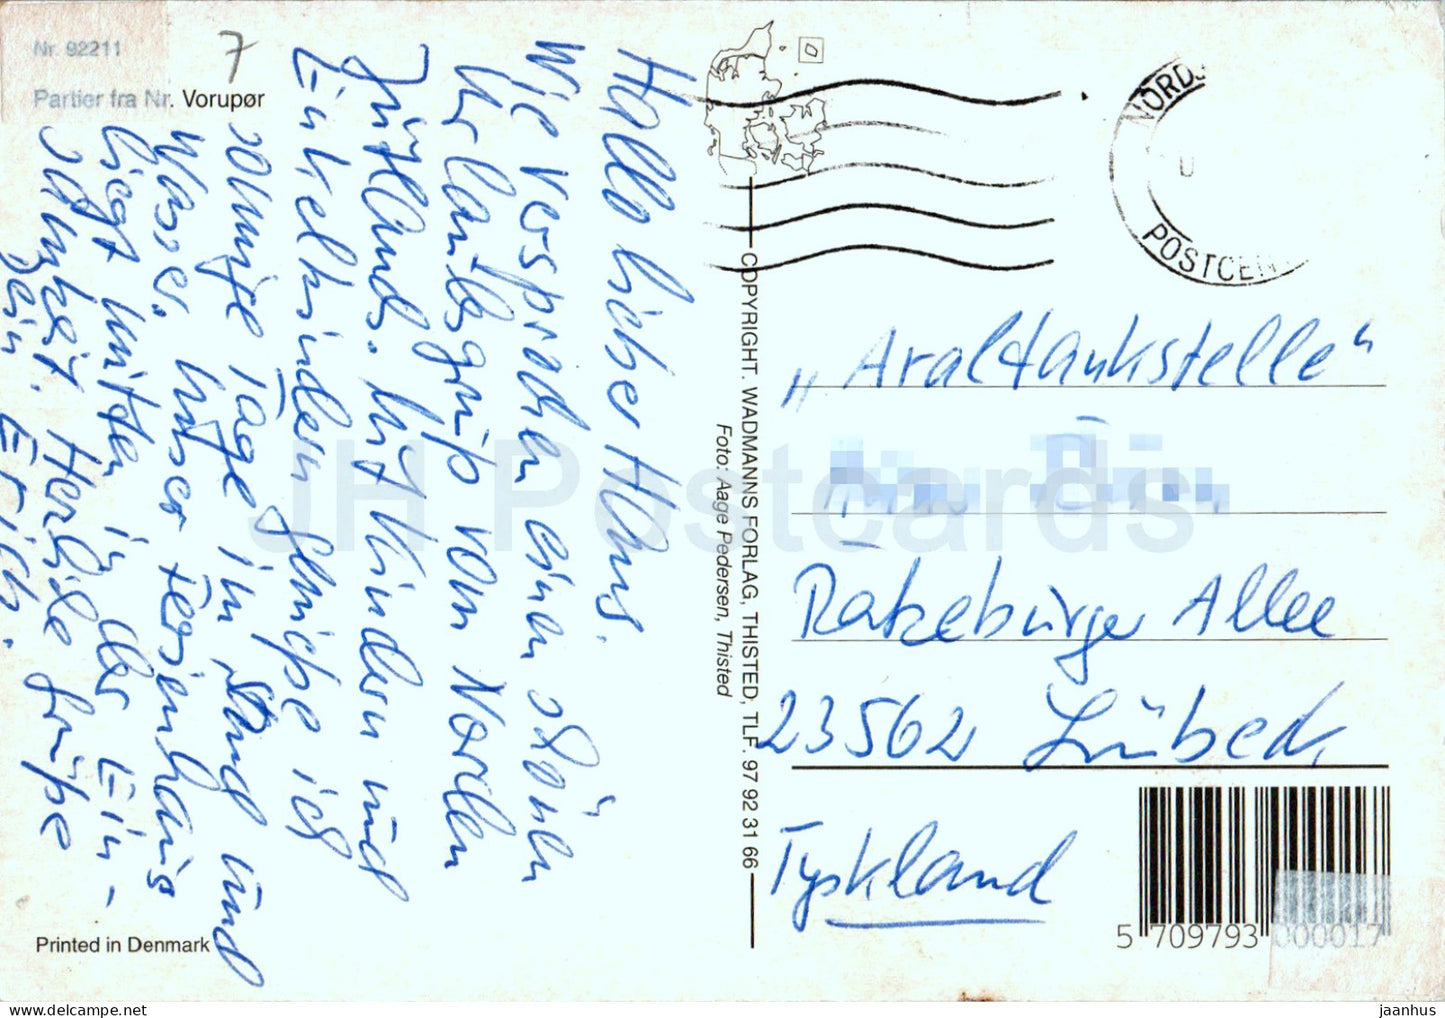 Nr. 92211
7
Partier fra Nr. Vorupør
Hallo lieber Hans.
Wie versprochen einen schönen
Urlaubsgruß vom Norden
Jütlands. Mit Kindern und
Enkelkindern genieße ich
sonnige Tage im Sand und
Wasser. Unser Ferienhaus
liegt mitten in der Ein-
samkeit. Herzliche Grüße
Dein Erich.
Printed in Denmark
COPYRIGHT. WADMANNS FORLAG, THISTED, TLF. 97 92 31 66
Foto: Aage Pedersen, Thisted
NORDJ
POSTCEN
„Araltankstelle“
Ratzeburger Allee
23562 Lübeck
Tyskland
5 709793 000017
JH Postcards
delcampe.net
jaanhus